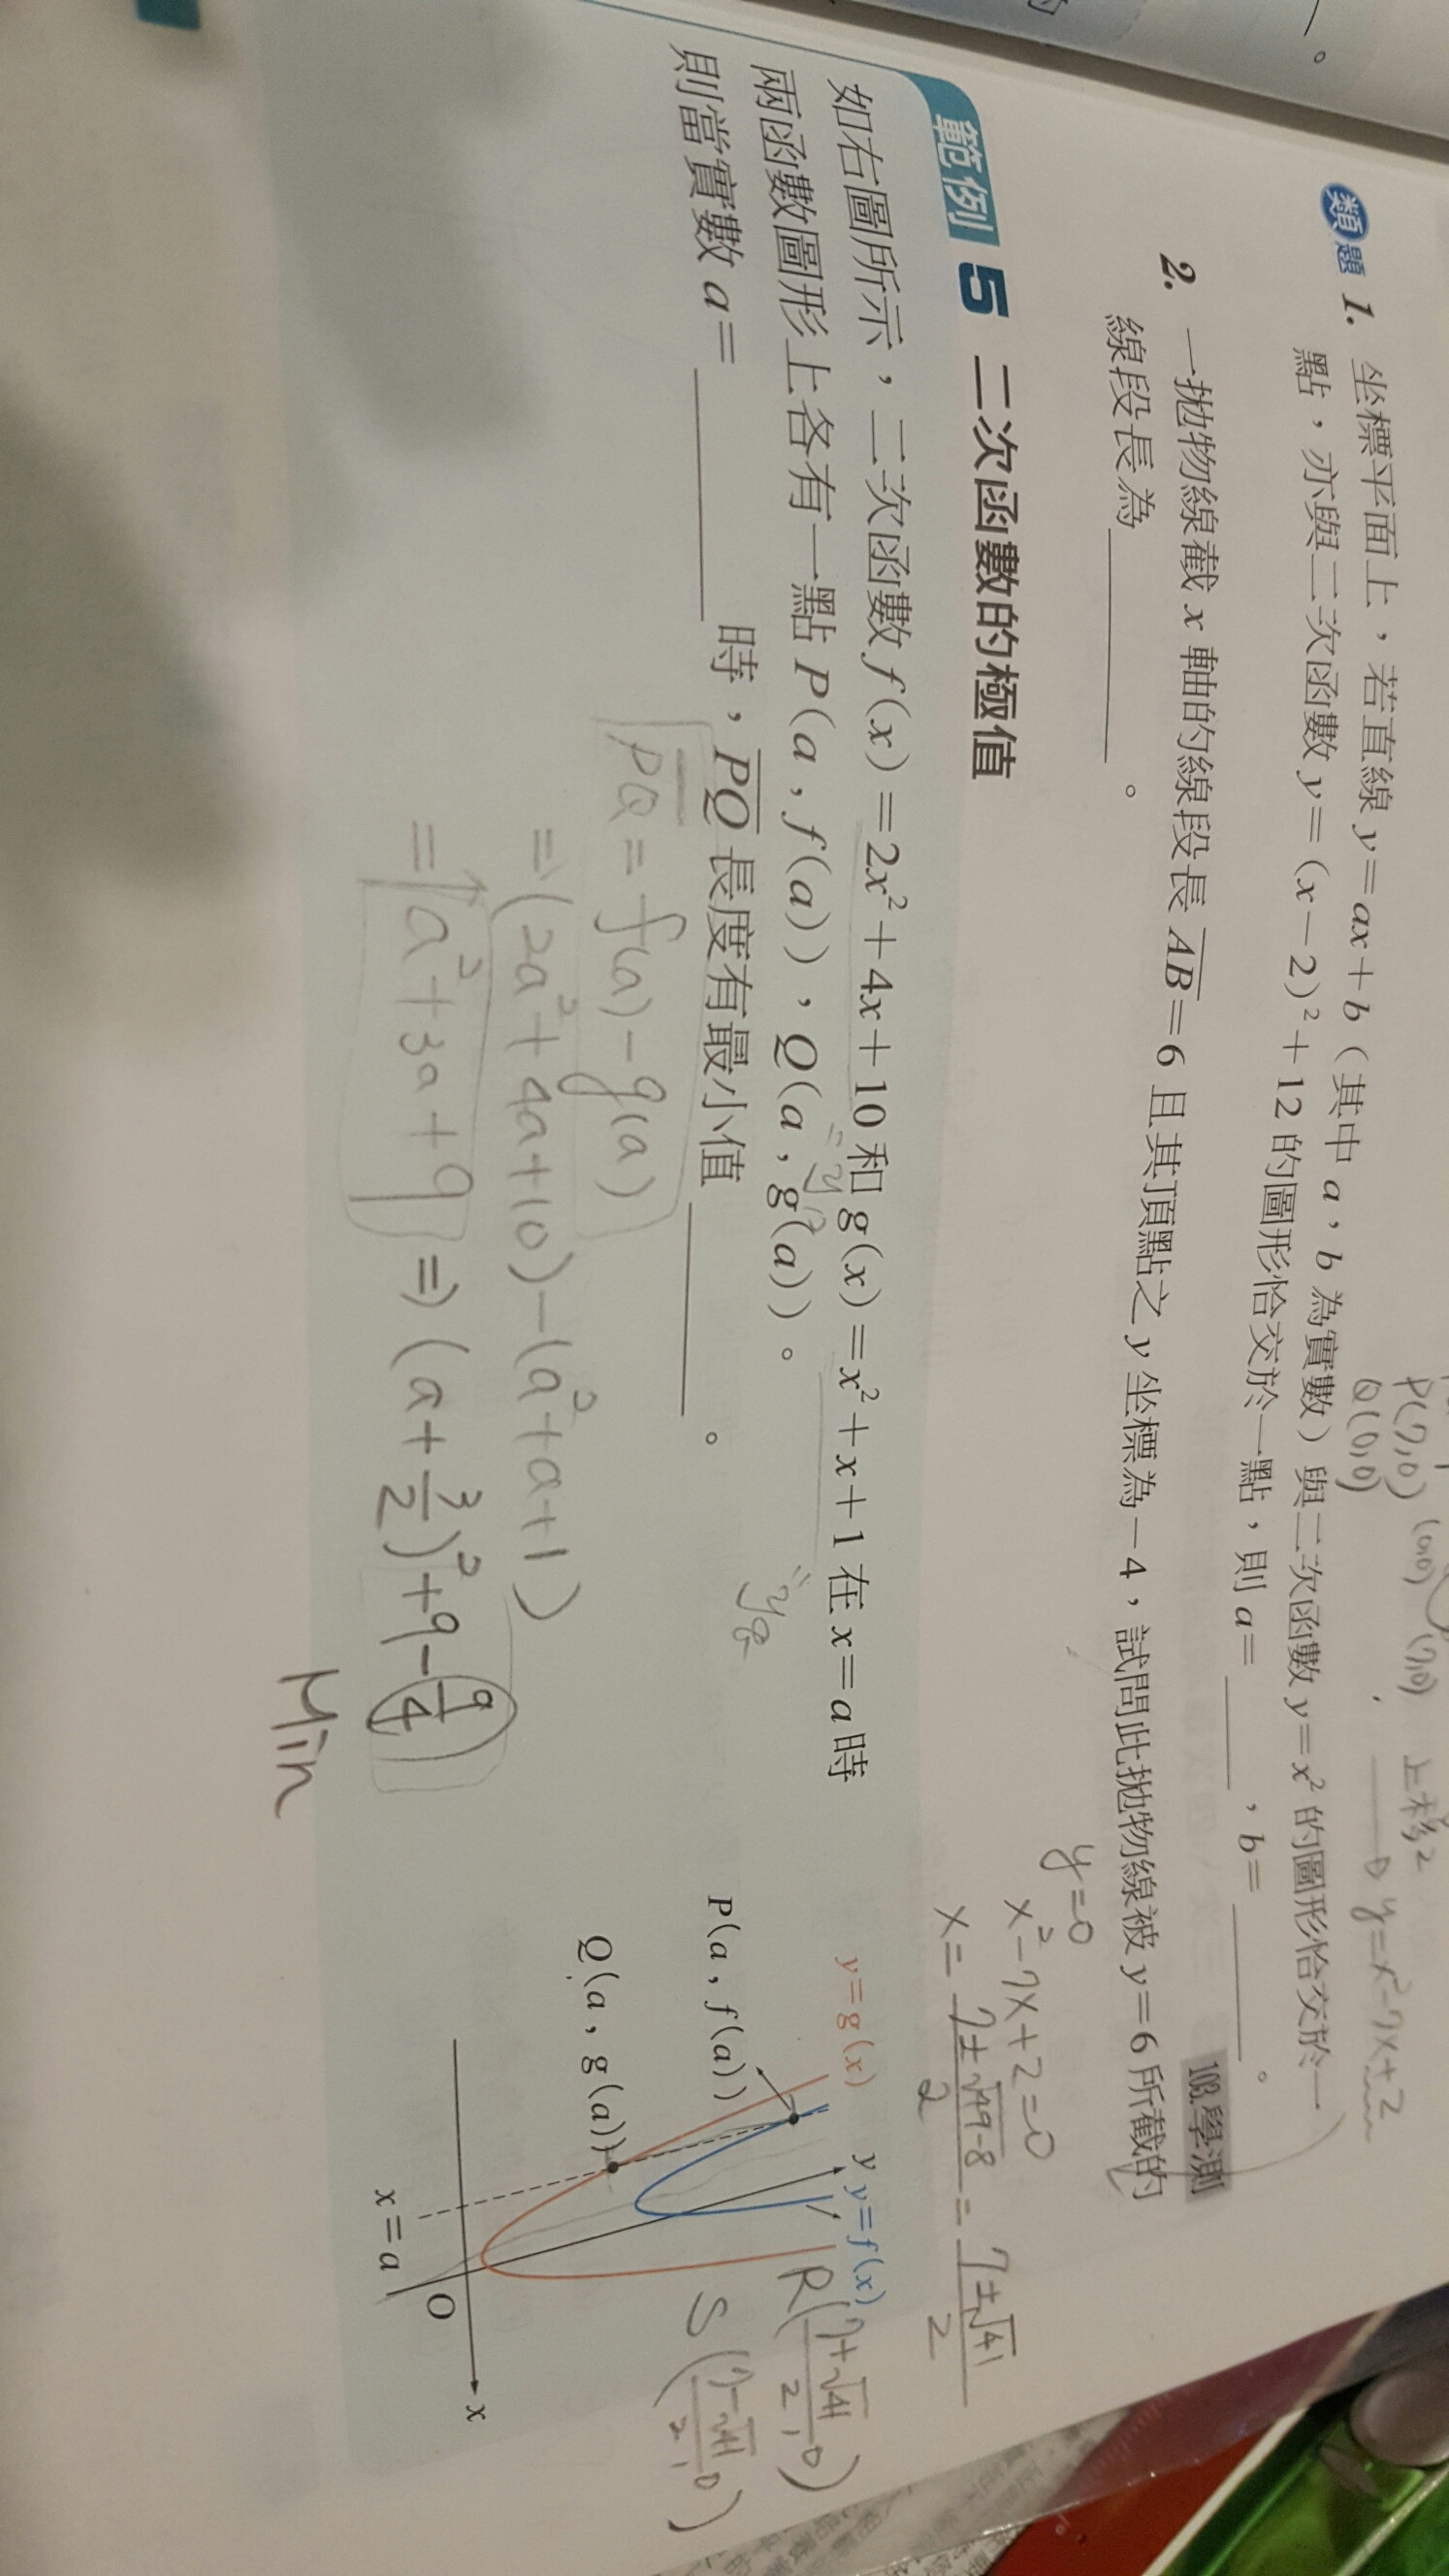 P(7,0) (0,0) (7,0) 上移2
Q(0,0) y=x²-7x+2
類題 1. 坐標平面上，若直線 y=ax+b（其中 a，b 為實數）與二次函數 y=x² 的圖形恰交於一
點，亦與二次函數 y=(x-2)²+12 的圖形恰交於一點，則 a=＿＿＿，b=＿＿＿。
103.學測
2. 一拋物線截 x 軸的線段長 A̅B̅=6 且其頂點之 y 坐標為-4，試問此拋物線被 y=6 所截的
線段長為＿＿＿。
y=0
x²-7x+2=0
x=(7±√49-8)/2=(7±√41)/2
範例 5 二次函數的極值
如右圖所示，二次函數 f(x)=2x²+4x+10 和 g(x)=x²+x+1 在 x=a 時
兩函數圖形上各有一點 P(a，f(a))，Q(a，g(a))。
則當實數 a=＿＿＿時，P̅Q̅ 長度有最小值＿＿＿。
P̅Q̅=f(a)-g(a)
=(2a²+4a+10)-(a²+a+1)
=a²+3a+9⇒(a+3/2)²+9-9/4
Min
y=g(x)
y
y=f(x)
P(a，f(a))
Q(a，g(a))
x=a
O
x
R((7+√41)/2,0)
S((7-√41)/2,0)